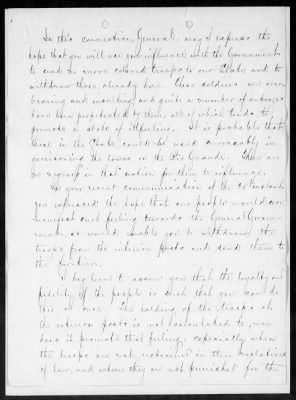 In this connection, General, may I express the
hope that you will use your influence with the Government
to send no more colored troops to our State, and to
withdraw those already here. These soldiers are over-
bearing and insulting, and quite a number of outrages
have been perpetrated by them, all of which tends to
promote a state of ill feeling. It is probable that
those in the State could be used serviceably in
garrisoning the towns on the Rio Grande. There are
no negroes in that section for them to influence.
In your recent communication of the instant
you expressed the hope that our people would soon
manifest such feeling towards the General Govern-
ment, as would enable you to withdraw the
troops from the interior posts and send them to
the frontier.
I beg leave to assure you that the loyalty and
fidelity of the people is such that you can do
this at once. The holding of the troops at
the interior posts is not calculated to, nor
does it promote that feeling, especially when
the troops are not restrained in their violations
of law, and when they are not punished for the